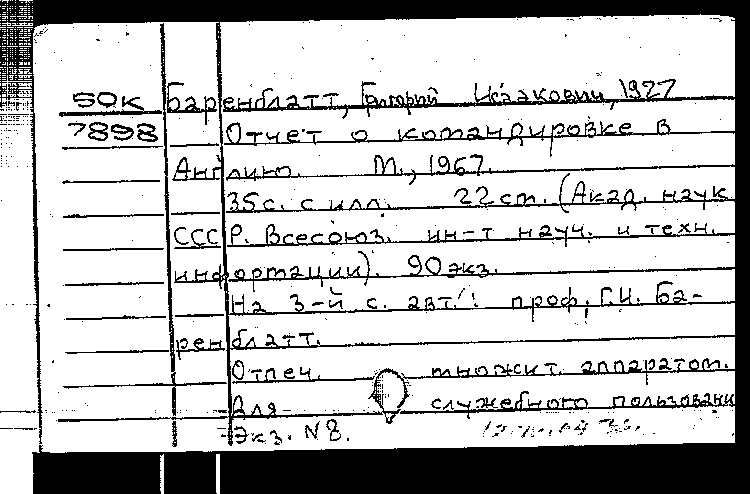 50к Баренблатт, Григорий Исаакович, 1927
7898 Отчет о командировке в
Англию. М., 1967.
35с. с илл. 22 см. (Акад. наук
СССР. Всесоюз. ин-т науч. и техн.
информации). 90 экз.
На 3-й с. авт.: проф. Г.И. Ба-
ренблатт.
Отпеч. множит. аппаратом.
Для служебного пользовани
Экз. N 8.